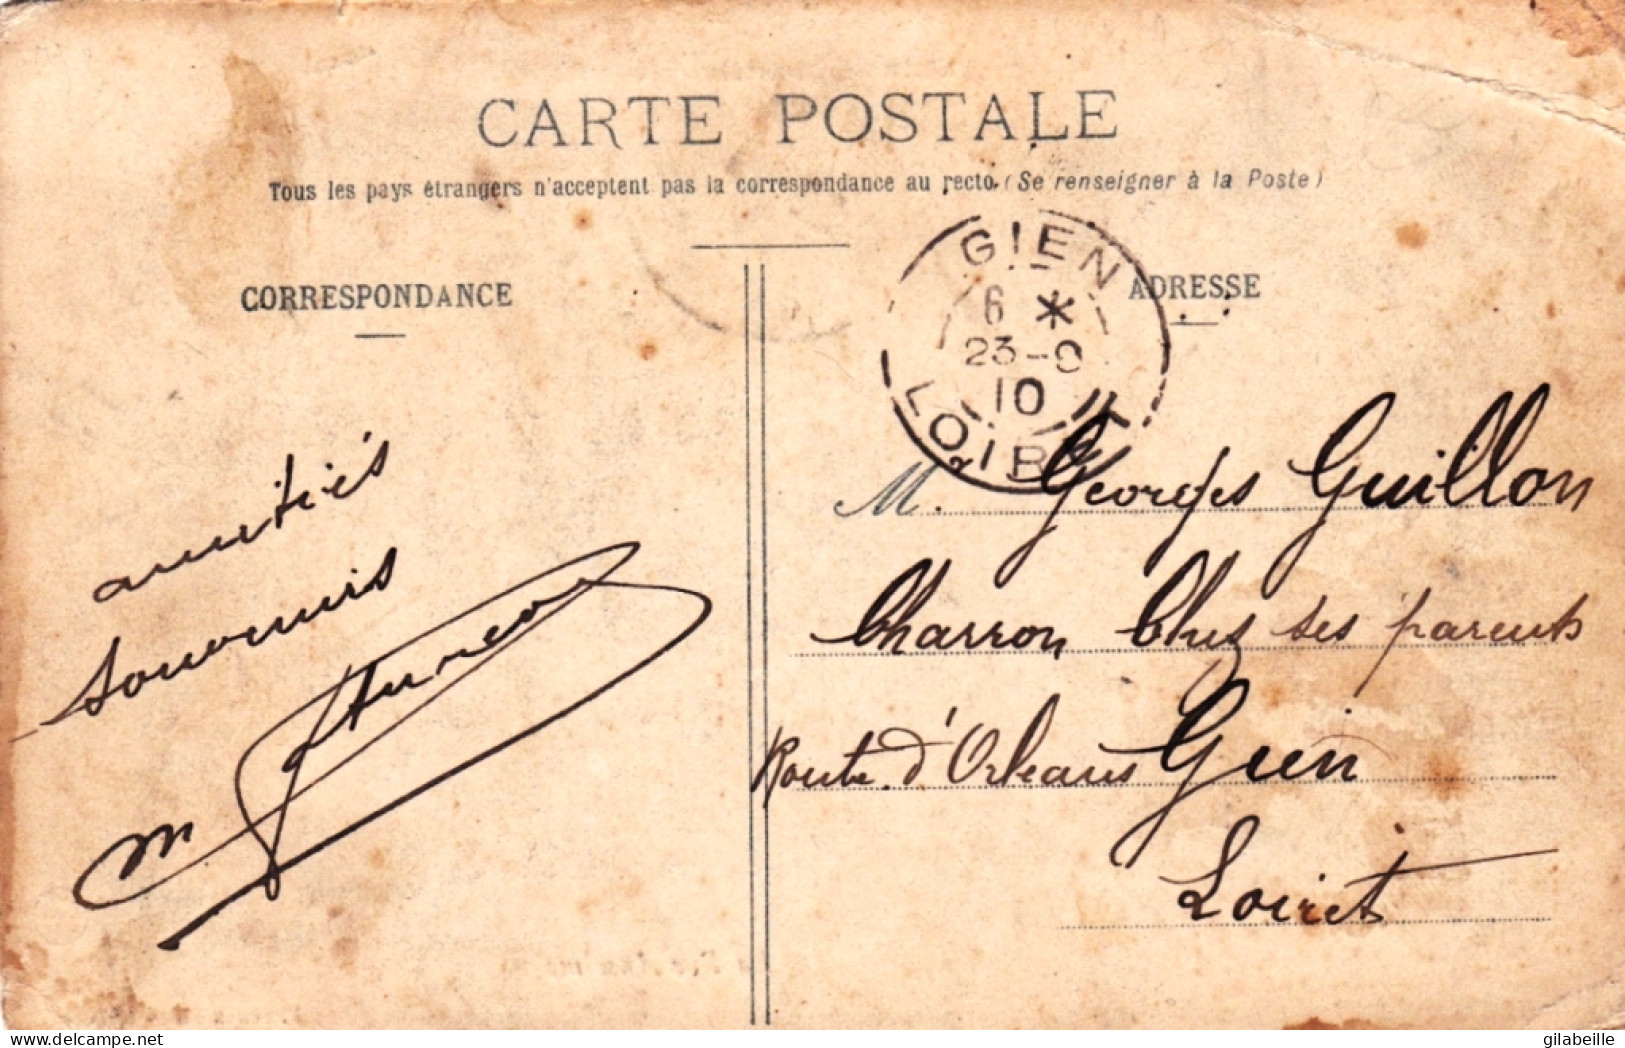 CARTE POSTALE
Tous les pays étrangers n'acceptent pas la correspondance au recto. (Se renseigner à la Poste)
CORRESPONDANCE
ADRESSE
GIEN
6 *
23-9
10
LOIRET
amitiés
souvenirs
M
M. Georges Guillon
Charron Chez ses parents
Route d'Orleans Gien
Loiret
gilabeille